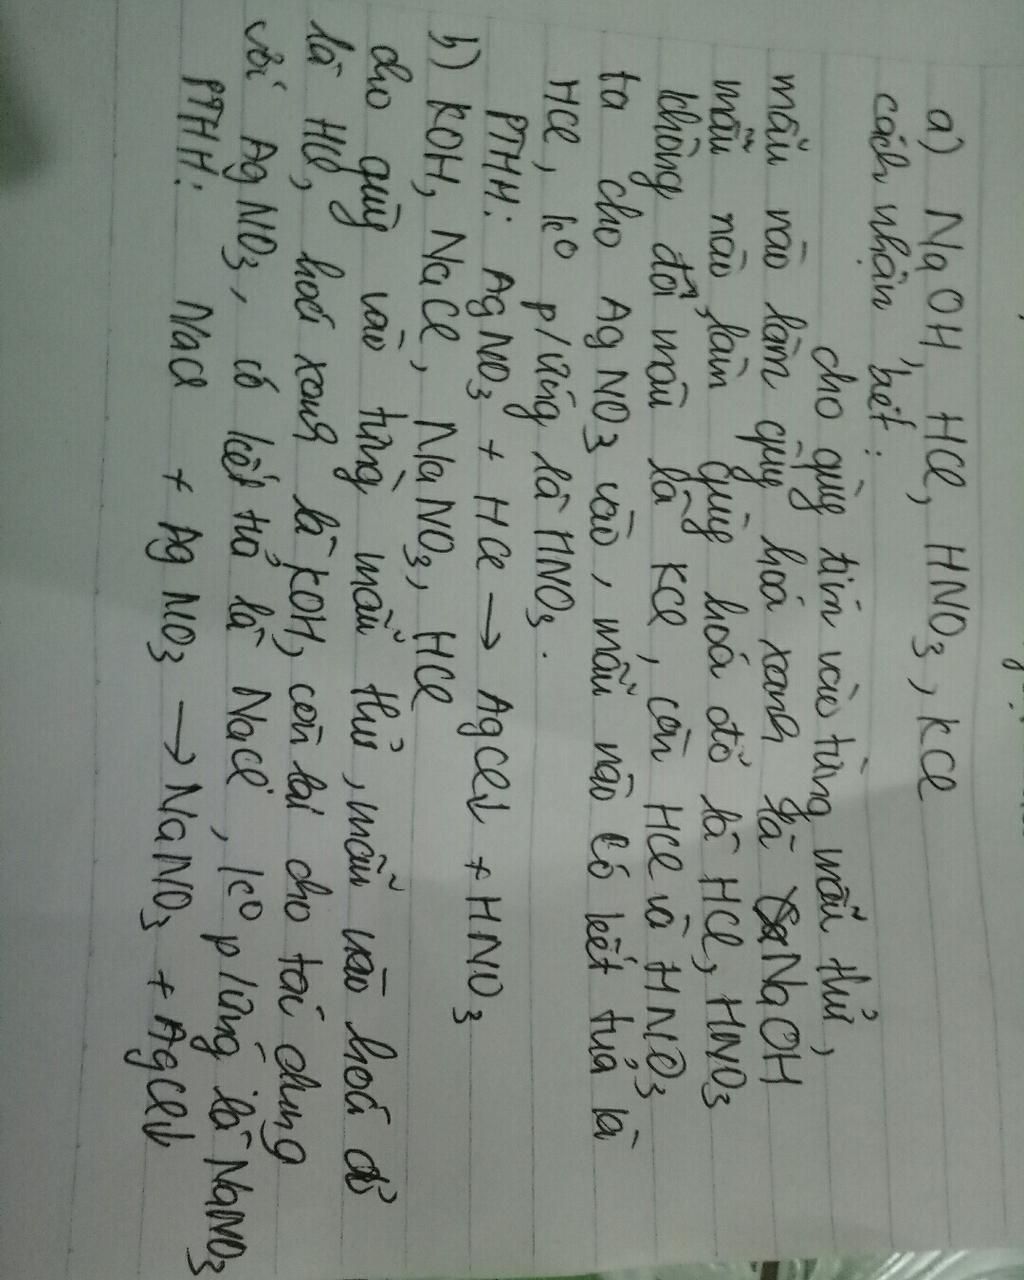 a) NaOH, HCl, HNO3, KCl
cách nhận biết:
cho quỳ tím vào từng mẫu thử,
mẫu nào làm quỳ hoá xanh là NaOH
mẫu nào làm quỳ hoá đỏ là HCl, HNO3
không đổi màu là KCl, còn HCl và HNO3
ta cho AgNO3 vào, mẫu nào có kết tủa là
HCl, ko p/ứng là HNO3.
PTHH: AgNO3 + HCl → AgCl↓ + HNO3
b) KOH, NaCl, NaNO3, HCl
cho quỳ vào từng mẫu thử, mẫu nào hoá đỏ
là HCl, hoá xanh là KOH, còn lại cho tác dụng
với AgNO3, có kết tủa là NaCl, ko p/ứng là NaNO3
PTHH: NaCl + AgNO3 → NaNO3 + AgCl↓